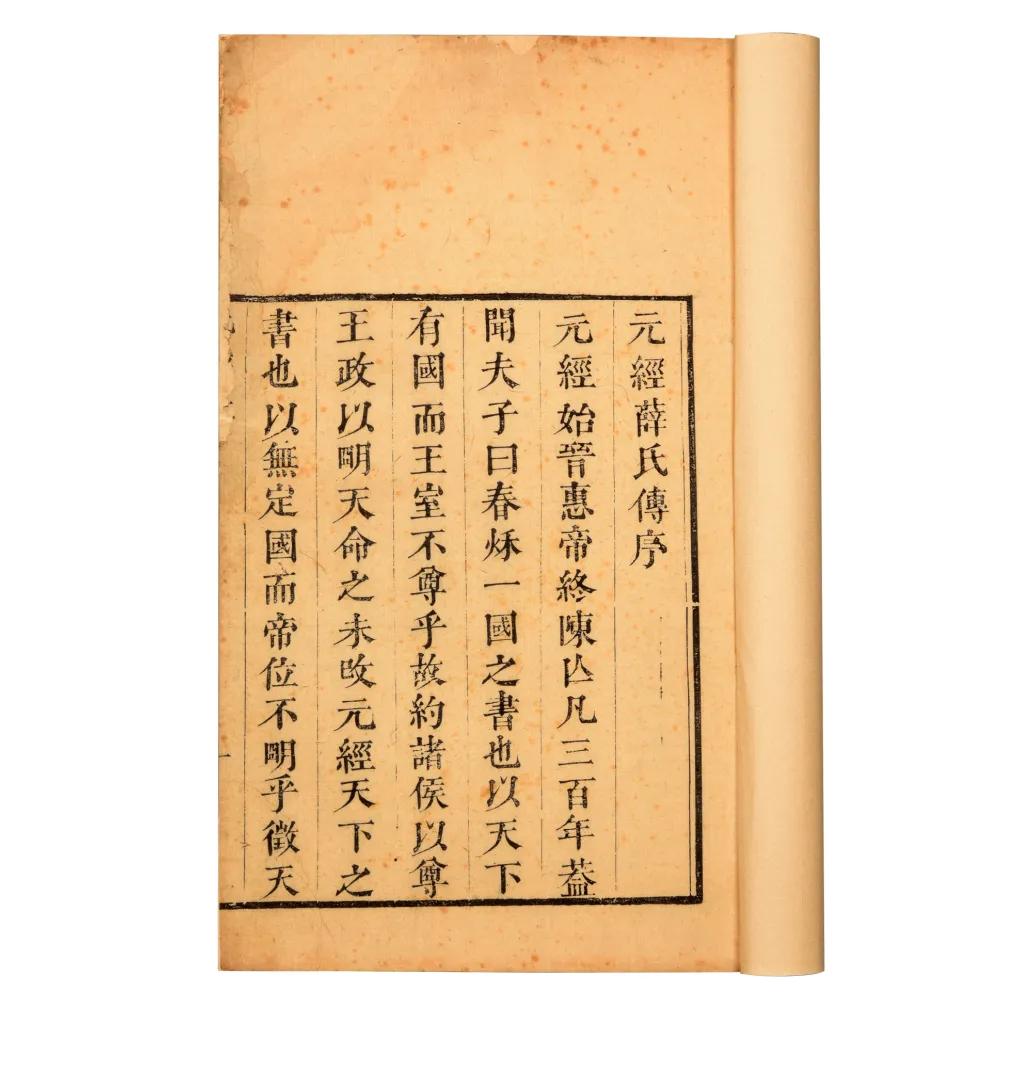 元經薛氏傳序
元經始晉惠帝終陳亾凡三百年葢
聞夫子曰春秌一國之書也以天下
有國而王室不尊乎故約諸侯以尊
王政以明天命之未改元經天下之
書也以無定國而帝位不明乎徵天